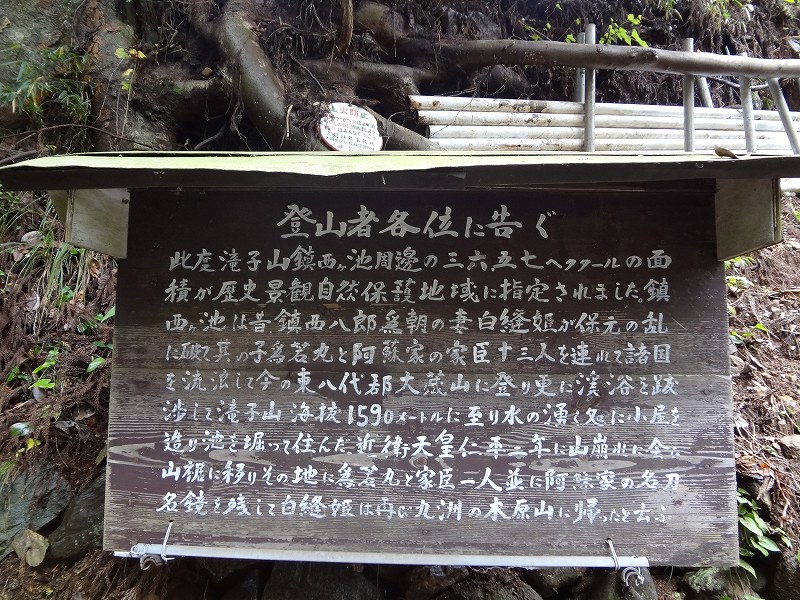 火防止
登山者各位に告ぐ
此度滝子山鎮西ヶ池周邊の三六五七ヘクタールの面
積が歴史景観自然保護地域に指定されました。鎮
西ヶ池は昔鎮西八郎為朝の妻白縫姫が保元の乱
に破て其の子為若丸と阿蘇家の家臣十三人を連れて諸国
を流浪して今の東八代郡大蔵山に登り更に渓谷を跋
渉して滝子山海抜1590メートルに至り水の湧く処に小屋を
造り池を堀って住んだ。近衛天皇仁平二年に山崩れに会い
山裾に移りその地に為若丸と家臣一人並に阿蘇家の名刀
名鏡を残して白縫姫は再び九洲の木原山に帰ったと云ふ